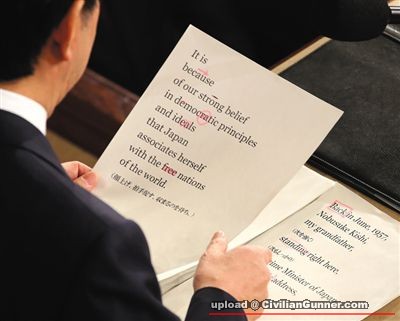 It is
because
of our strong belief
in democratic principles
and ideals
that Japan
associates herself
with the free nations
of the world.
(顔上げ、拍手促す、収まるのを待ち。)
Back in June, 1957,
Nobusuke Kishi,
my grandfather,
standing right here,
Prime Minister of Japan
address,
upload @ CivilianGunner.com